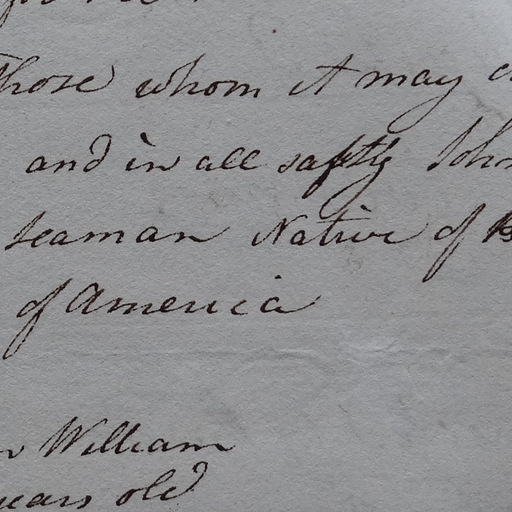 Those whom it may
and in all safty John
seaman Native of
of America
William
years old